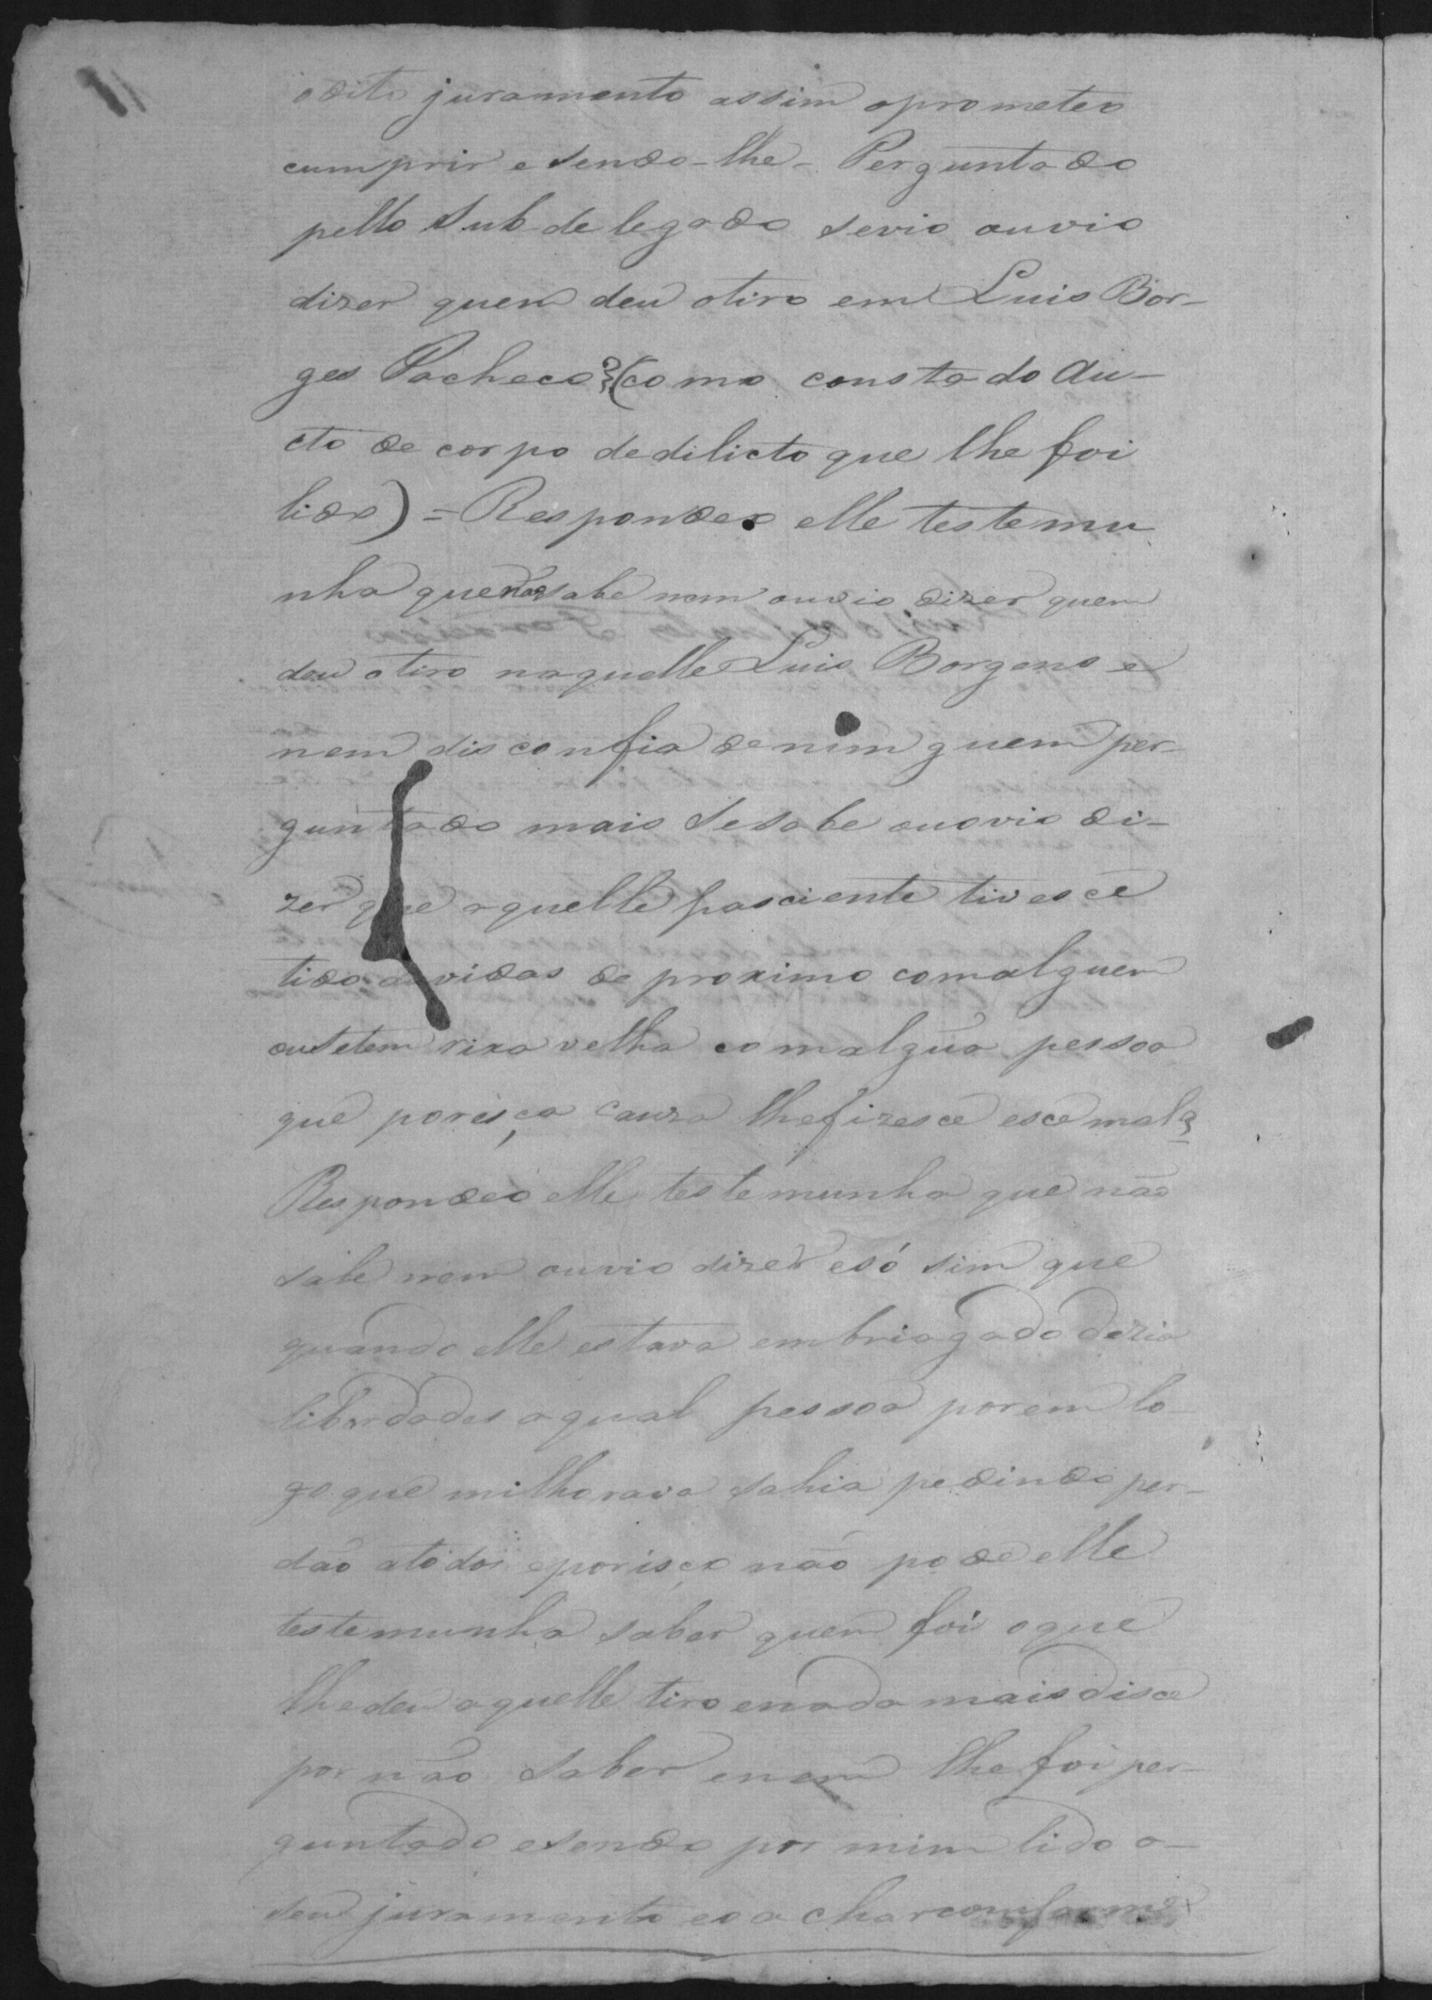 odito juramento assim oprometeo
cumprir e sendo-lhe - Perguntado
pello Sub-delegado sevio ouvio
dizer quem deu otiro em Luis Bor-
ges Pacheco? (como consta do Au-
cto de corpo dedilicto que lhe foi
lido) = Respondeo elle testemu
nha que não sabe nem ouvio dizer quem
deu otiro naquelle Luis Borgens e
nem disconfia deninguem per-
guntado mais Sesabe ouovio di-
zer que aquelle pasciente tivesce
tido duvidas de proximo comalguem
ouSetem rixa velha comalgũa pessoa
que porisça cauza lhefizesce esce mal?
Respondeo elle testemunha que não
sabe nem ouvio dizer esó sim que
quando elle estava embriagado dezia
liberdades aqual pessoa porem lo-
go que milhorava sahia pedindo per-
dão atodos eporisço não pode elle
testemunha saber quem foi oque
lhedeu aquelle tiro enada maisdisce
por não saber enem lhe foi per-
guntado esendo por mim lido o-
seu juramento eoachar comforme